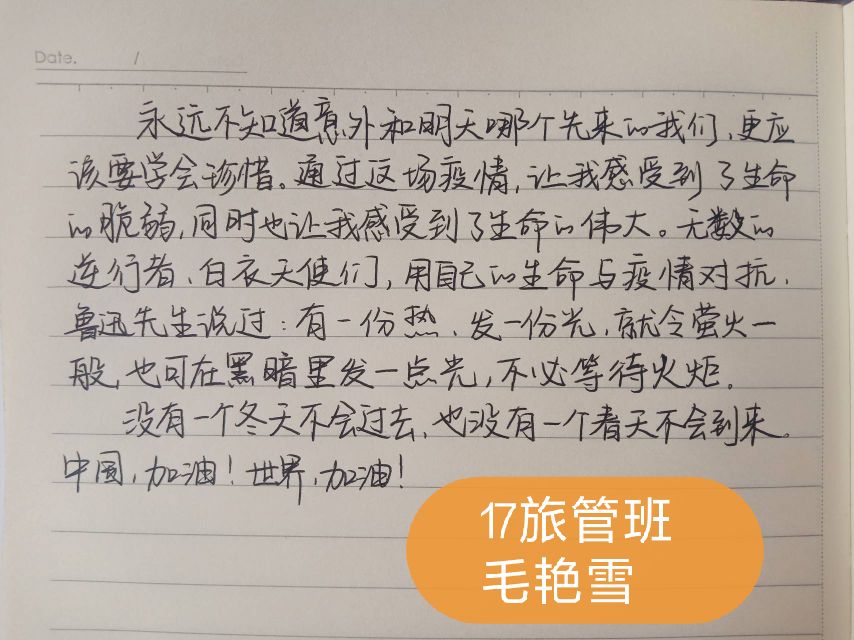 Date. /
永远不知道意外和明天哪个先来的我们,更应
该要学会珍惜。通过这场疫情,让我感受到了生命
的脆弱,同时也让我感受到了生命的伟大。无数的
逆行者、白衣天使们,用自己的生命与疫情对抗.
鲁迅先生说过:有一份热、发一份光,就令萤火一
般,也可在黑暗里发一点光,不必等待火炬.
没有一个冬天不会过去,也没有一个春天不会到来。
中国,加油!世界,加油!
17旅管班
毛艳雪